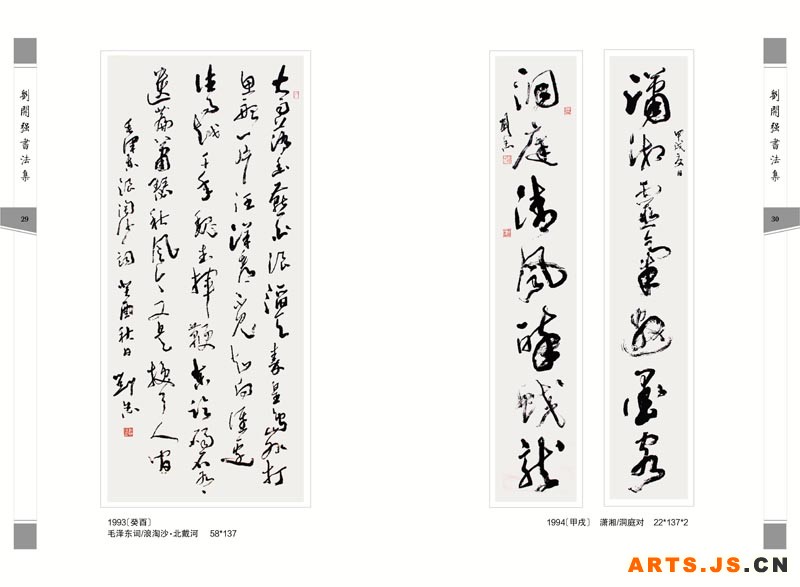 劉開强書法集
29
大雨落幽燕白浪滔天秦皇島外打
魚船一片汪洋都不見知向誰邊
往事越千年魏武揮鞭东临碣石有
遺篇蕭瑟秋風今又是换了人间
毛澤东浪淘沙词 癸酉秋日 劉
1993［癸酉］
毛泽东词/浪淘沙·北戴河 58*137
劉開强書法集
30
甲戌夏日
瀟湘靈氣墨客
洞庭清風醉龍
劉
1994［甲戌］ 潇湘/洞庭对 22*137*2
ARTS.JS.CN